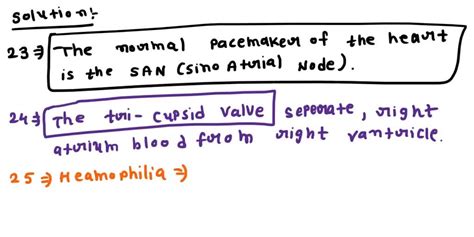 Solution:-
23⇒ The normal pacemaker of the heart
is the SAN (sino Atrial Node).
24⇒ The tri-cupsid valve seperate, right
atrium blood from right vantricle.
25⇒ Heamophilia ⇒